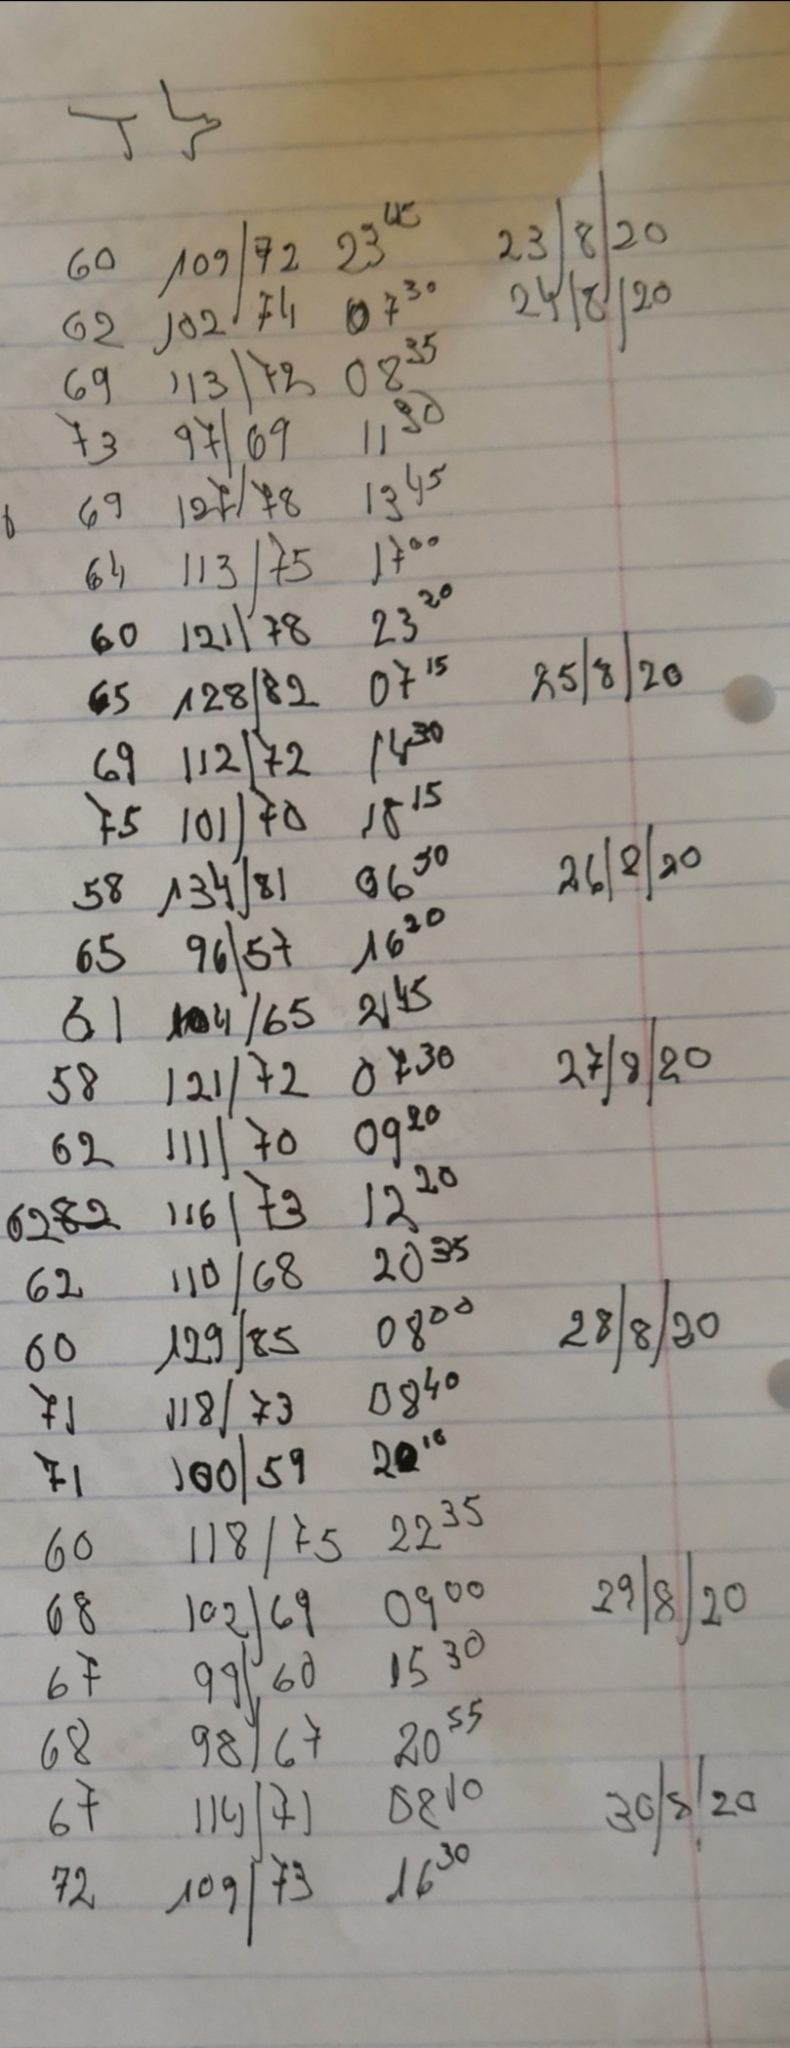 60 109/72 23 45 23/8/20
62 102/74 07 30 24/8/20
69 113/72 08 35
73 97/69 11 30
69 127/78 13 45
64 113/75 17 00
60 121/78 23 20
65 128/82 07 15 25/8/20
69 112/72 14 30
75 101/70 18 15
58 134/81 06 50 26/8/20
65 96/57 16 20
61 104/65 21 45
58 121/72 07 30 27/8/20
62 111/70 09 20
62 116/73 12 20
62 110/68 20 35
60 129/85 08 00 28/8/20
71 118/73 08 40
71 100/59 20 10
60 118/75 22 35
68 102/69 09 00 29/8/20
67 99/60 15 30
68 98/67 20 55
67 114/71 08 10 30/8/20
72 109/73 16 30